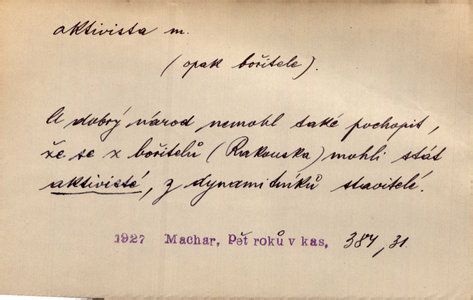 aktivista m.
(opak bořitele).
A dobrý národ nemohl také pochopit,
že se z bořitelů (Rakouska) mohli stát
aktivisté, z dynamitníků stavitelé.
1927 Machar, Pět roků v kas, 384, 31